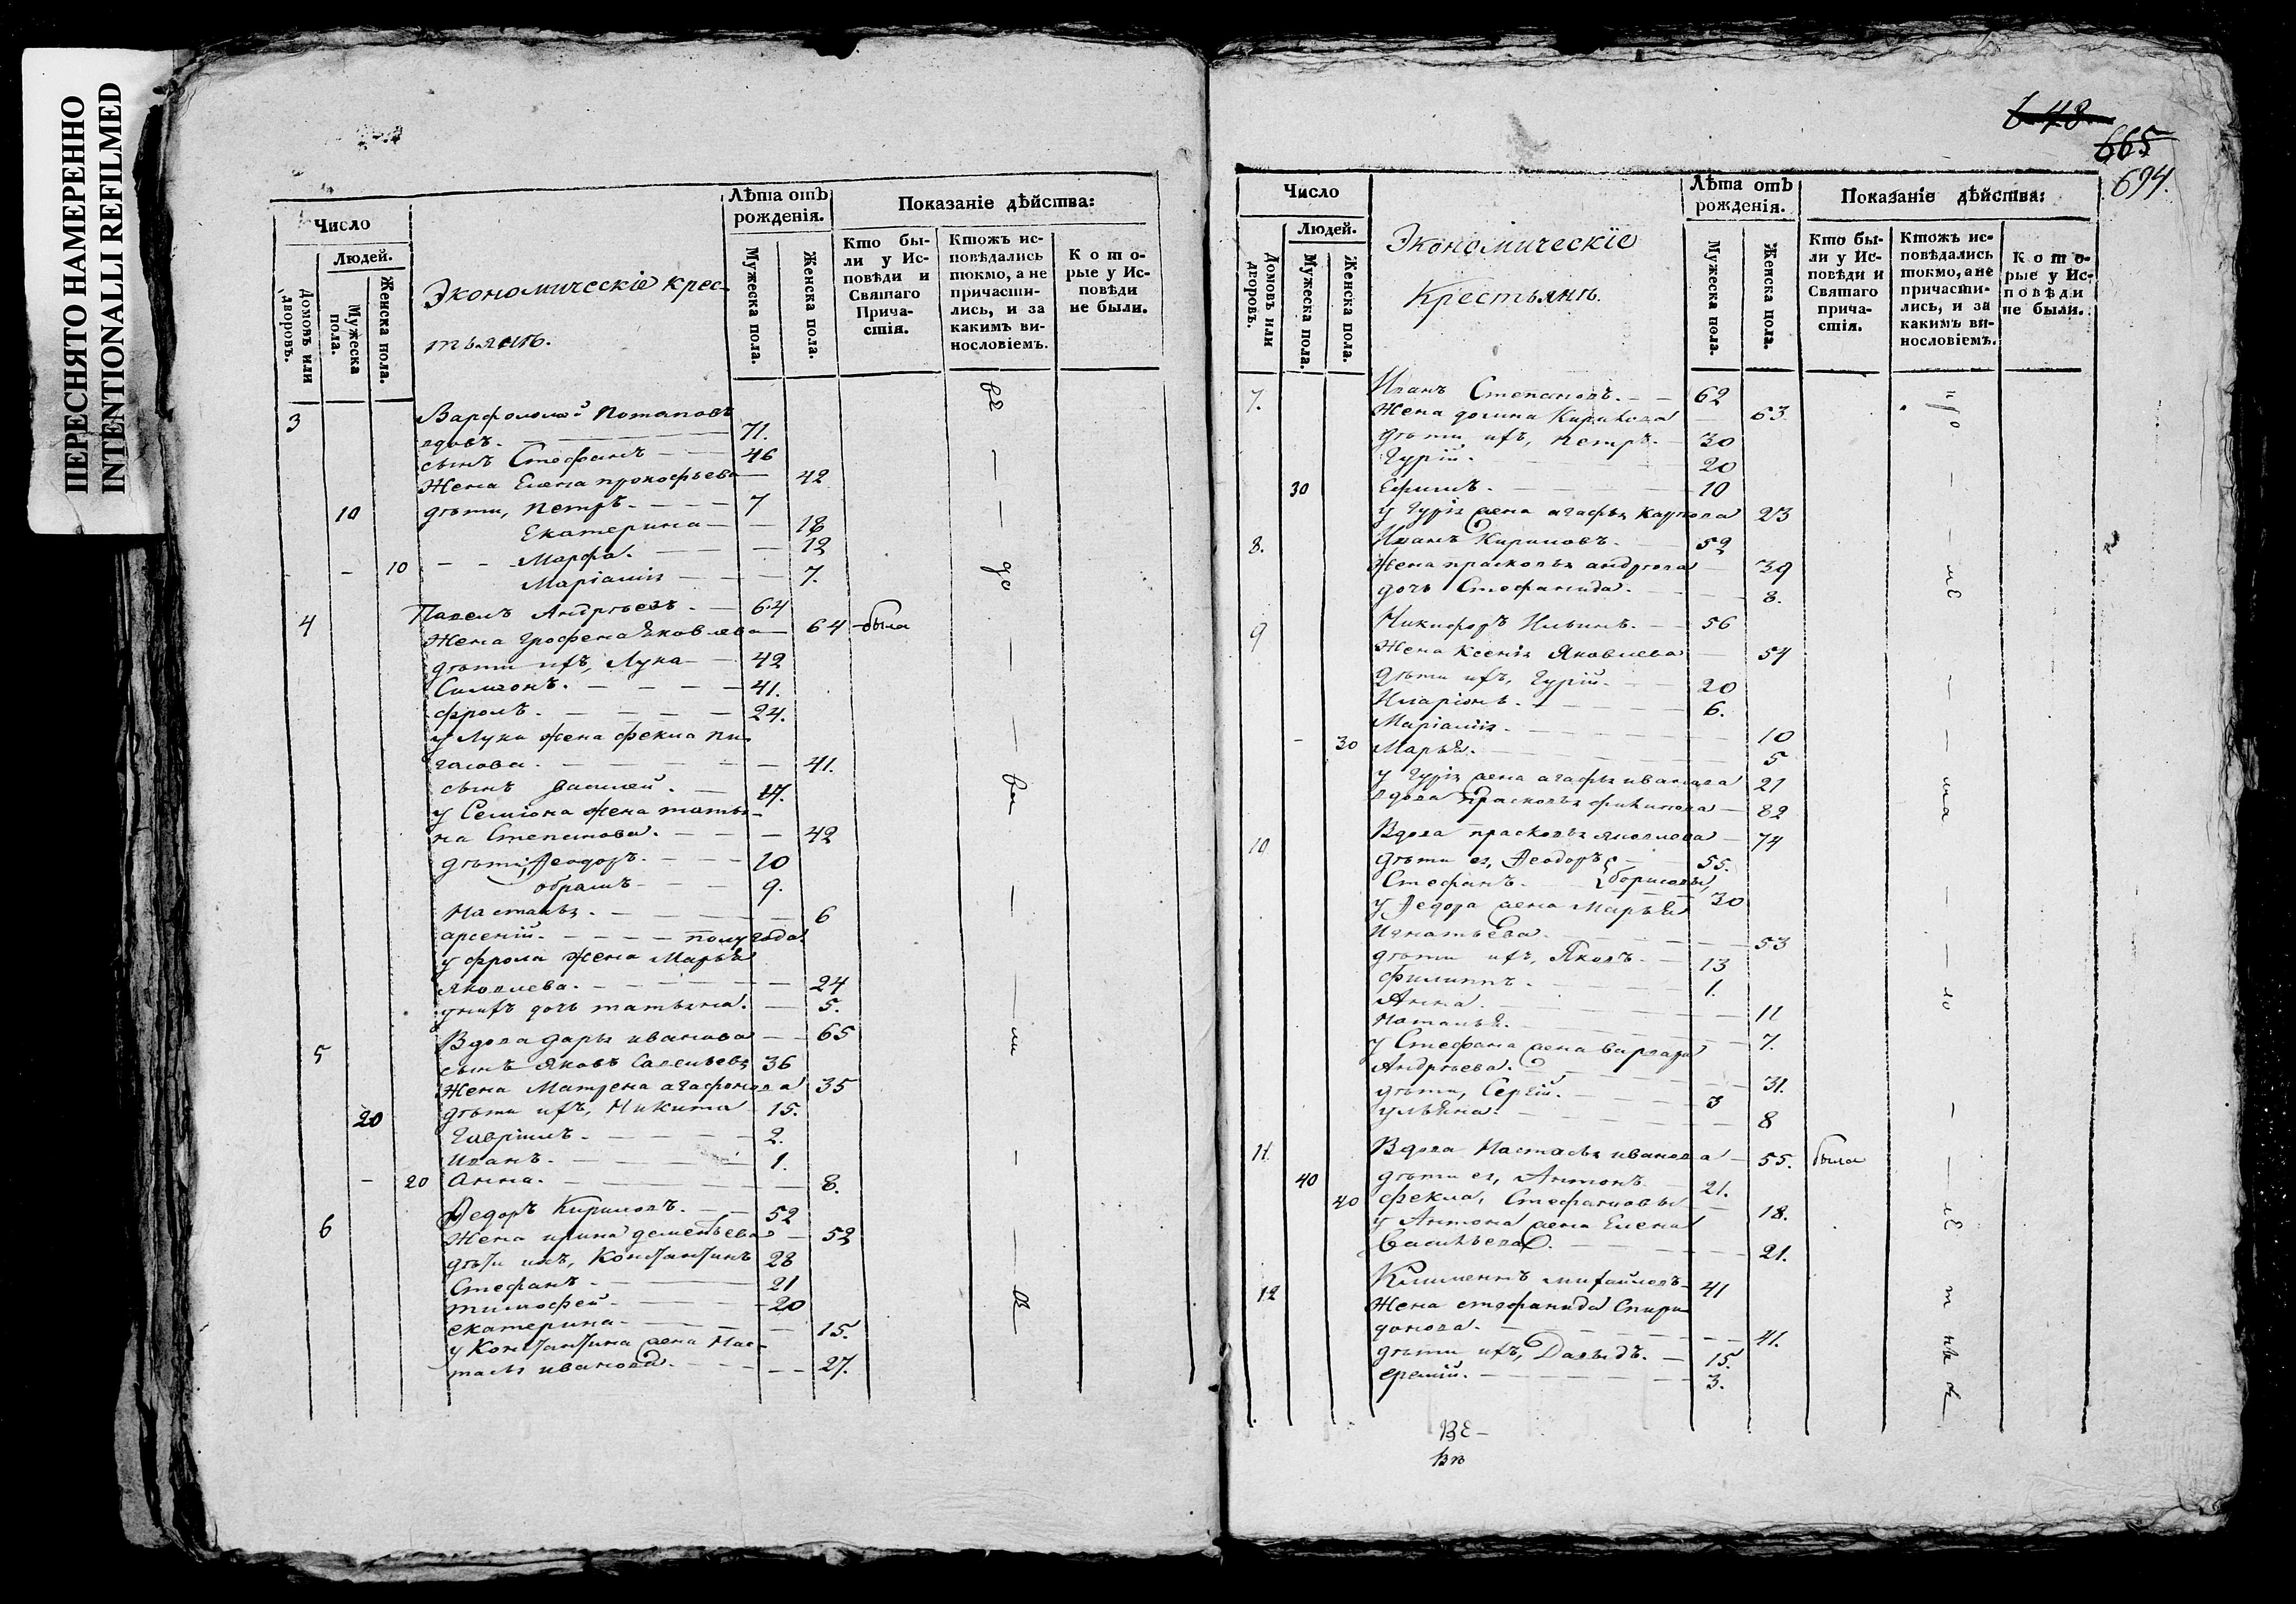 ПЕРЕСНЯТО НАМЕРЕННО
INTENTIONALLI REFILMED
Число
Людей.
Домовъ или дворовъ.
Мужеска пола.
Женска пола.
Экономическіе крес-
тьянъ.
Лѣта отъ рожденія.
Мужеска пола.
Женска пола.
Показаніе дѣйства:
Кто были у Исповѣди и Святаго Причастія.
Ктожъ исповѣдались токмо, а не причастились, и за какимъ винословіемъ.
Которые у Исповѣди не были.
3 Варфоломей Потаповъ
вдовъ. 71.
сынъ Стефанъ 46
Жена Елена прокофьева 42
10 дѣти, Петръ. 7
Екатерина 18
10 Марфа. 12
Маріамія 7.
4 Павелъ Андрѣевъ. 64
Жена Грофена Яковлева 64 была
дѣти ихъ, Лука 42
Симеонъ. 41.
фролъ. 24.
у Луки жена фекла пи
гасова. 41.
сынъ Василей. 17.
у Семіона жена татья-
на Степанова. 42
дѣти, Феодоръ. 10
обрамъ 9.
Настасья. 6
арсеній. полугода.
у фрола жена Марья
Яковлева. 24
у нихъ дочь татьяна. 5.
5 Вдова дарья иванова 65
сынъ Яковъ Савельевъ 36
Жена Матрена агафонова 35
20 дѣти ихъ, Никита 15.
Гавріилъ. 2.
Иванъ. 1.
20 Анна. 8.
6 Федоръ Кириловъ. 52
Жена ирина дементьева 52
дѣти ихъ, Константинъ 28
Стефанъ 21
тимофей 20
екатерина 15.
у Константина жена Нас-
тасья иванова. 27.
648
665
694.
Число
Людей.
Домовъ или дворовъ.
Мужеска пола.
Женска пола.
Экономическіе
Крестьянъ.
Лѣта отъ рожденія.
Мужеска пола.
Женска пола.
Показаніе дѣйства:
Кто были у Исповѣди и Святаго причастія.
Ктожъ исповѣдались токмо, а не причастились, и за какимъ винословіемъ.
Которые у Исповѣди не были.
7. Иванъ Степановъ. 62
Жена домна Кирилова 63
дѣти ихъ, петръ. 30
Гурій. 20
30 Ефимъ. 10
у Гурія жена агафья Карпова 23
8. Иванъ Кириловъ. 52
Жена прасковья андреева 39
дочь Стефанида. 8.
9 Никифоръ Ильинъ. 56
Жена Ксенія Яковлева 54
дѣти ихъ, Гурій. 20
Иларіонъ. 6.
Маріамія. 10
30 Марья. 5
у Гурія жена агафья иванова 21
вдова прасковья филипова 82
10 Вдова прасковья яковлева 74
дѣти ея, Феодоръ 55.
Стефанъ. борисовы, 30
у Федора жена Марья
Игнатьева. 53
дѣти ихъ, Яковъ. 13
филиппъ. 1.
Анна. 11
Наталья. 7.
у Стефана жена варвара
Андрѣева. 31.
дѣти, Сергій. 3
ульяна. 8
11. Вдова Настасья иванова 55. была
40 дѣти ея, Антонъ 21.
40 фекла, Стефановы 18.
у Антона жена Елена
Васильева. 21.
12 Климентъ михайловъ 41
Жена стефанида Спири
донова. 41.
дѣти ихъ, Давыдъ. 15.
еремій. 3.